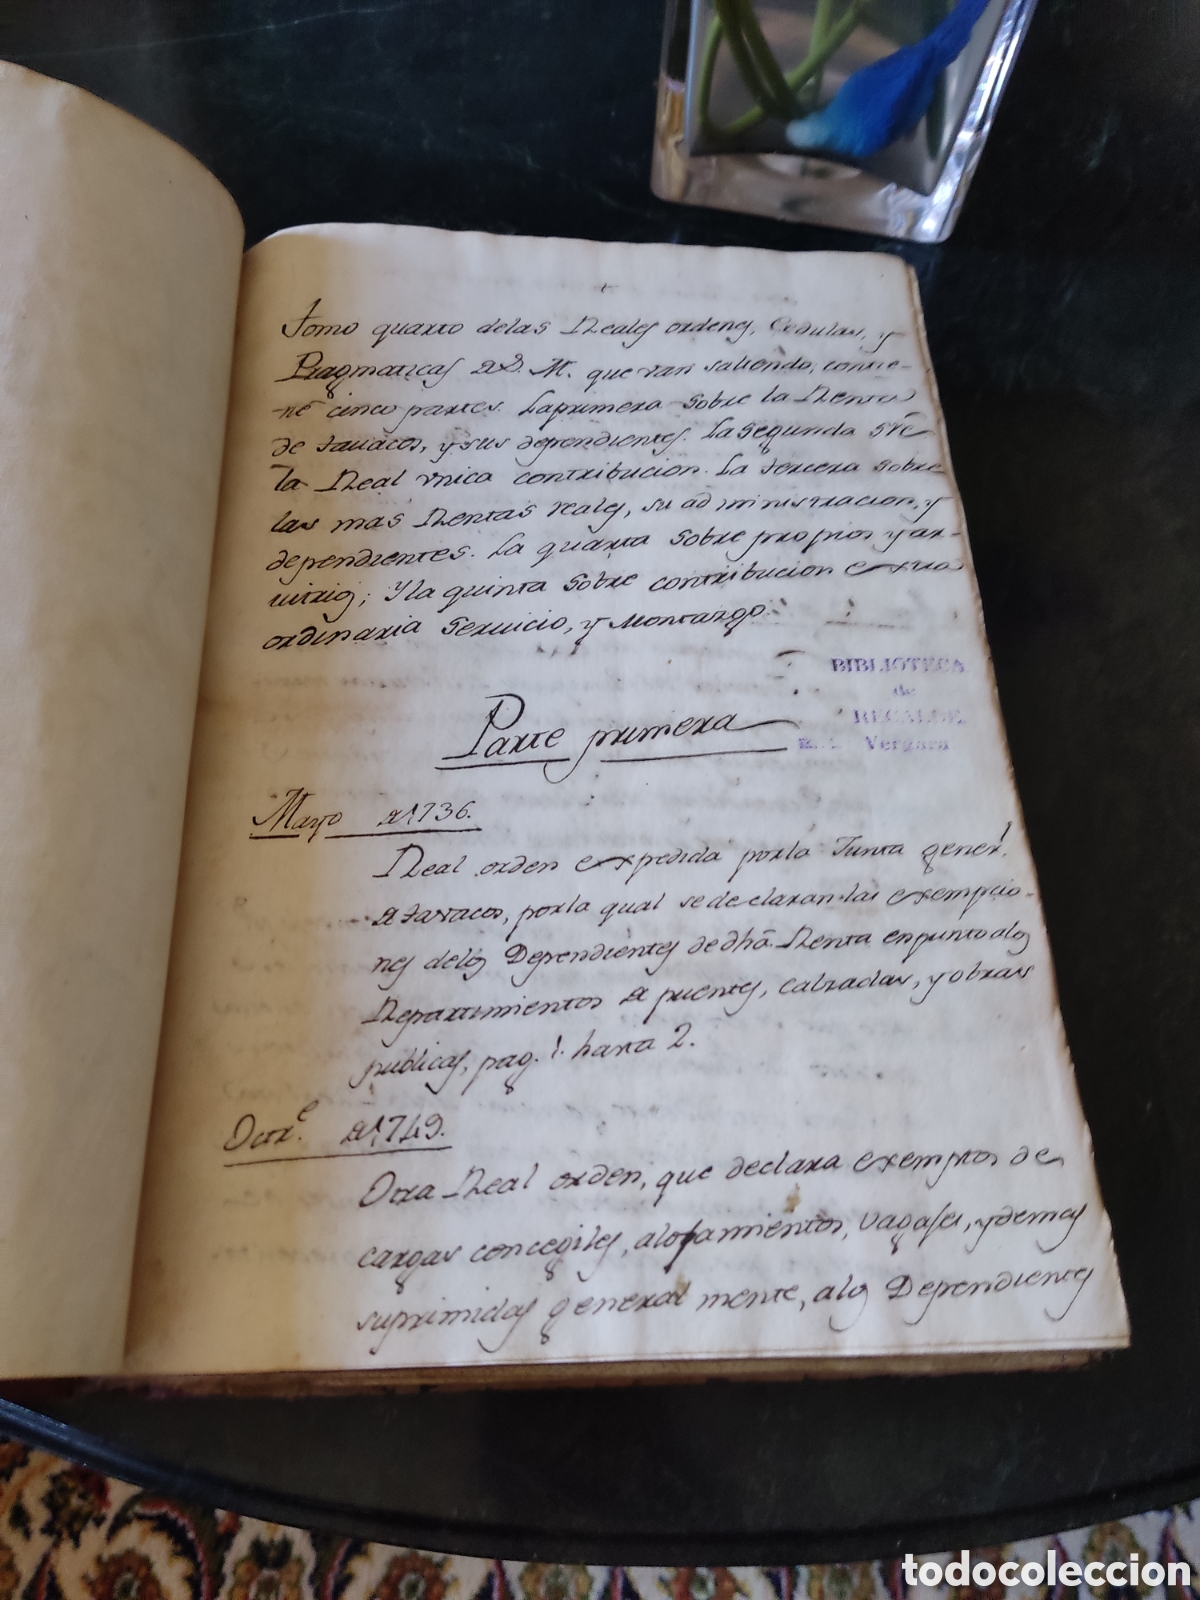 Tomo quarto delas Reales ordenes, Cedulas, y
Pragmaticas de S. M. que van saliendo, contie-
-nē cinco partes. La primera sobre la Renta
de tauacos, y sus dependientes. La segunda srē
la Real vnica contribucion. La tercera sobre
las mas Rentas reales, su administracion, y
dependientes. La quarta sobre propios y ar-
uitrios; y la quinta sobre contribucion extra
ordinaria seruicio, y Montazgo.
BIBLIOTECA
de
RECALDE
Vergara
Parte primera
Mayo de 1736.
Real orden expedida por la Junta generl.
de tavacos, por la qual se declaran las exempcio-
nes delos Dependientes de dhā. Renta en punto alos
Repartimientos de puentes, calzadas, y obras
publicas, pag. 1. hasta 2.
Octre. de 1749.
Otra Real orden, que declara exemptos de
cargas concegiles, alojamientos, vagajes, y demas
suprimidas generalmente, alos Dependientes
todocoleccion